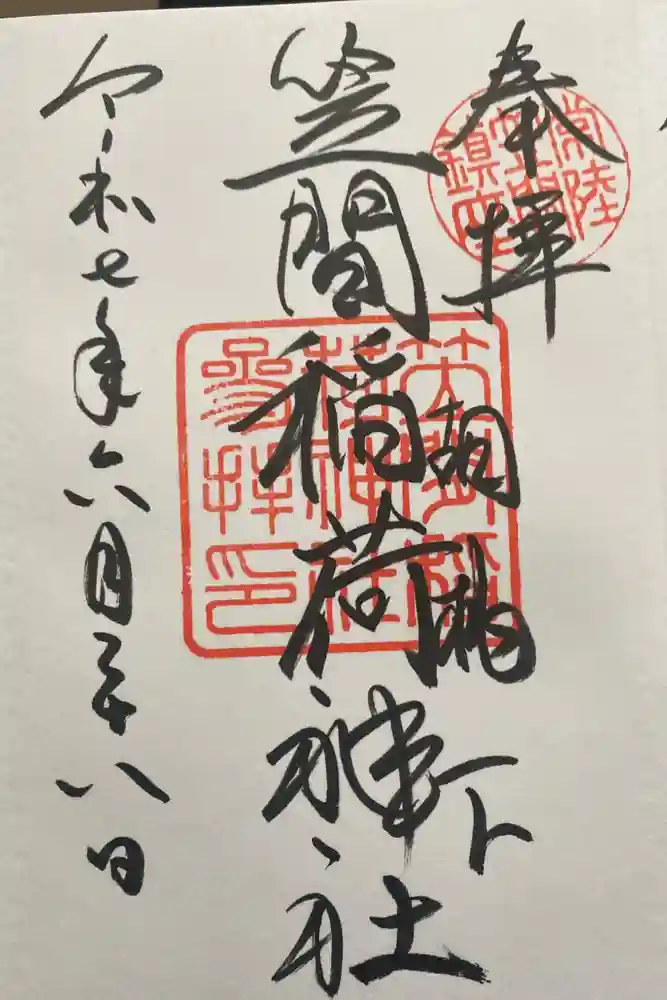 奉拝
常陸
笠間
鎮座
胡桃下
笠間稲荷神社
笠間稲
荷神社
參拝印
令和七年六月二十八日